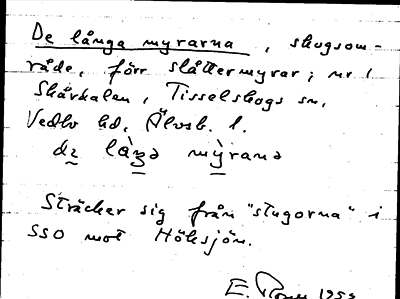 De långa myrarna, skogsom-
råde, förr slåttermyrar; nr 1
Skårkalen, Tisselskogs sn,
Vedbo hd, Älvsb. l.
de làŋa mỳrana
Sträcker sig från "stugorna" i
SSO mot Höksjön.
E. 1959